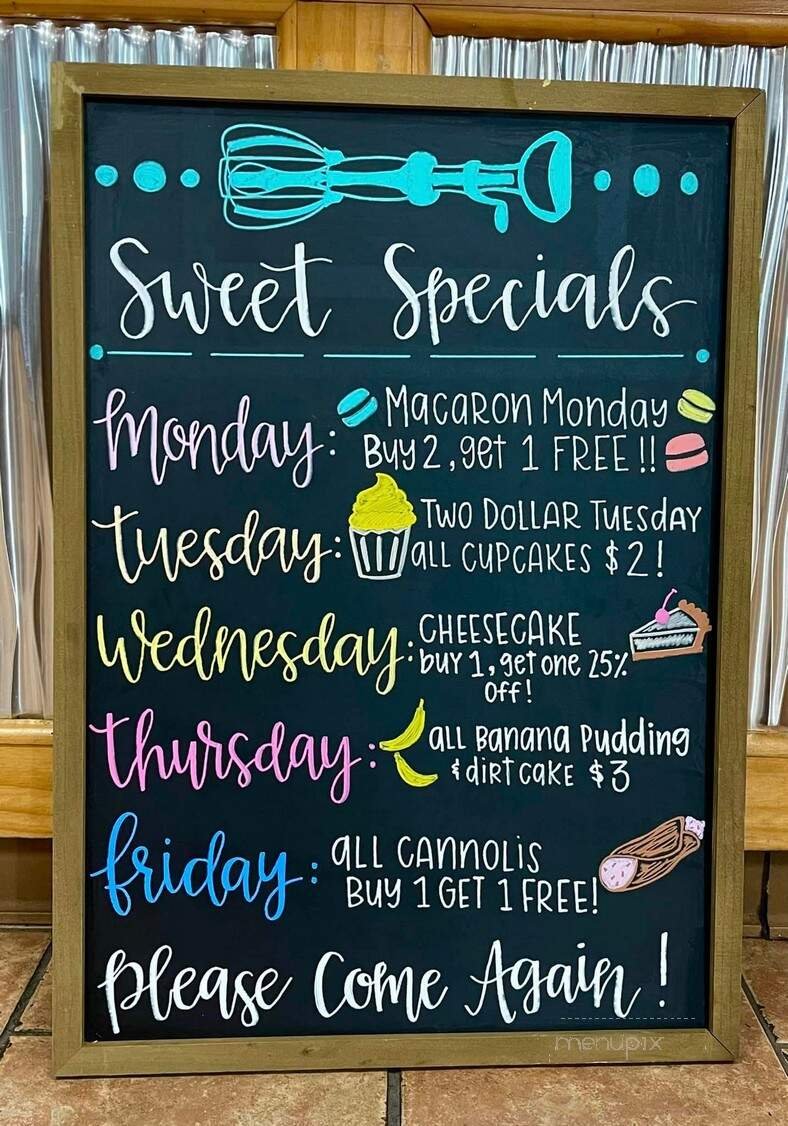 Sweet Specials
Monday: Macaron Monday
Buy 2, get 1 FREE!!
Tuesday: TWO DOLLAR TUESDAY
all CUPCAKES $2!
Wednesday: CHEESECAKE
buy 1, get one 25%
Off!
Thursday: all Banana Pudding
& dirt cake $3
friday: all cannolis
BUY 1 GET 1 FREE!
Please Come Again!
menupix